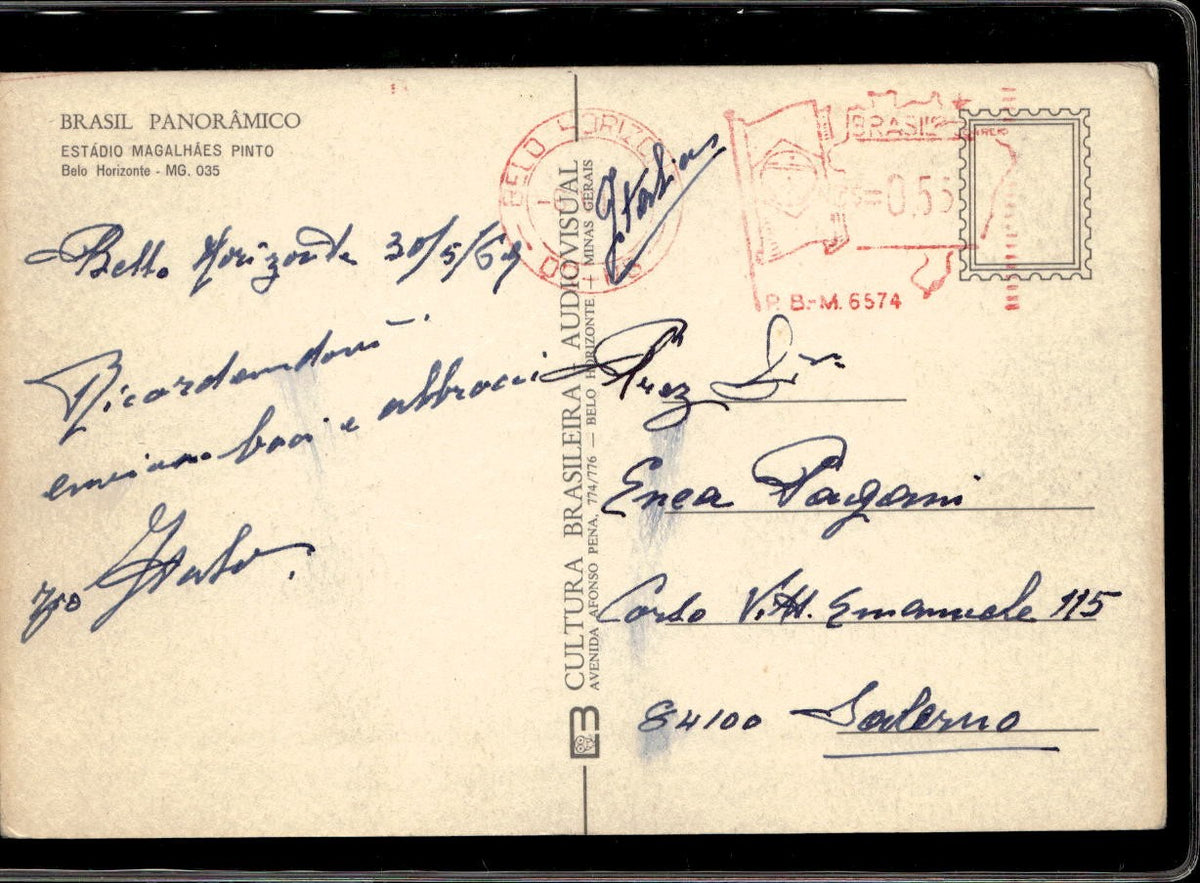 BRASIL PANORÂMICO
ESTÁDIO MAGALHÁES PINTO
Belo Horizonte - MG. 035
Bello Horizonte 30/5/69
Ricordandovi
inviamo baci e abbracci
Italo
CULTURA BRASILEIRA AUDIOVISUAL
AVENIDA AFONSO PENA, 774/776 — BELO HORIZONTE — MINAS GERAIS
BELO HORIZO
BRASIL
=0.55
P. B.-M. 6574
Enea Pagani
Corso Vitt. Emanuele 115
84100 Salerno